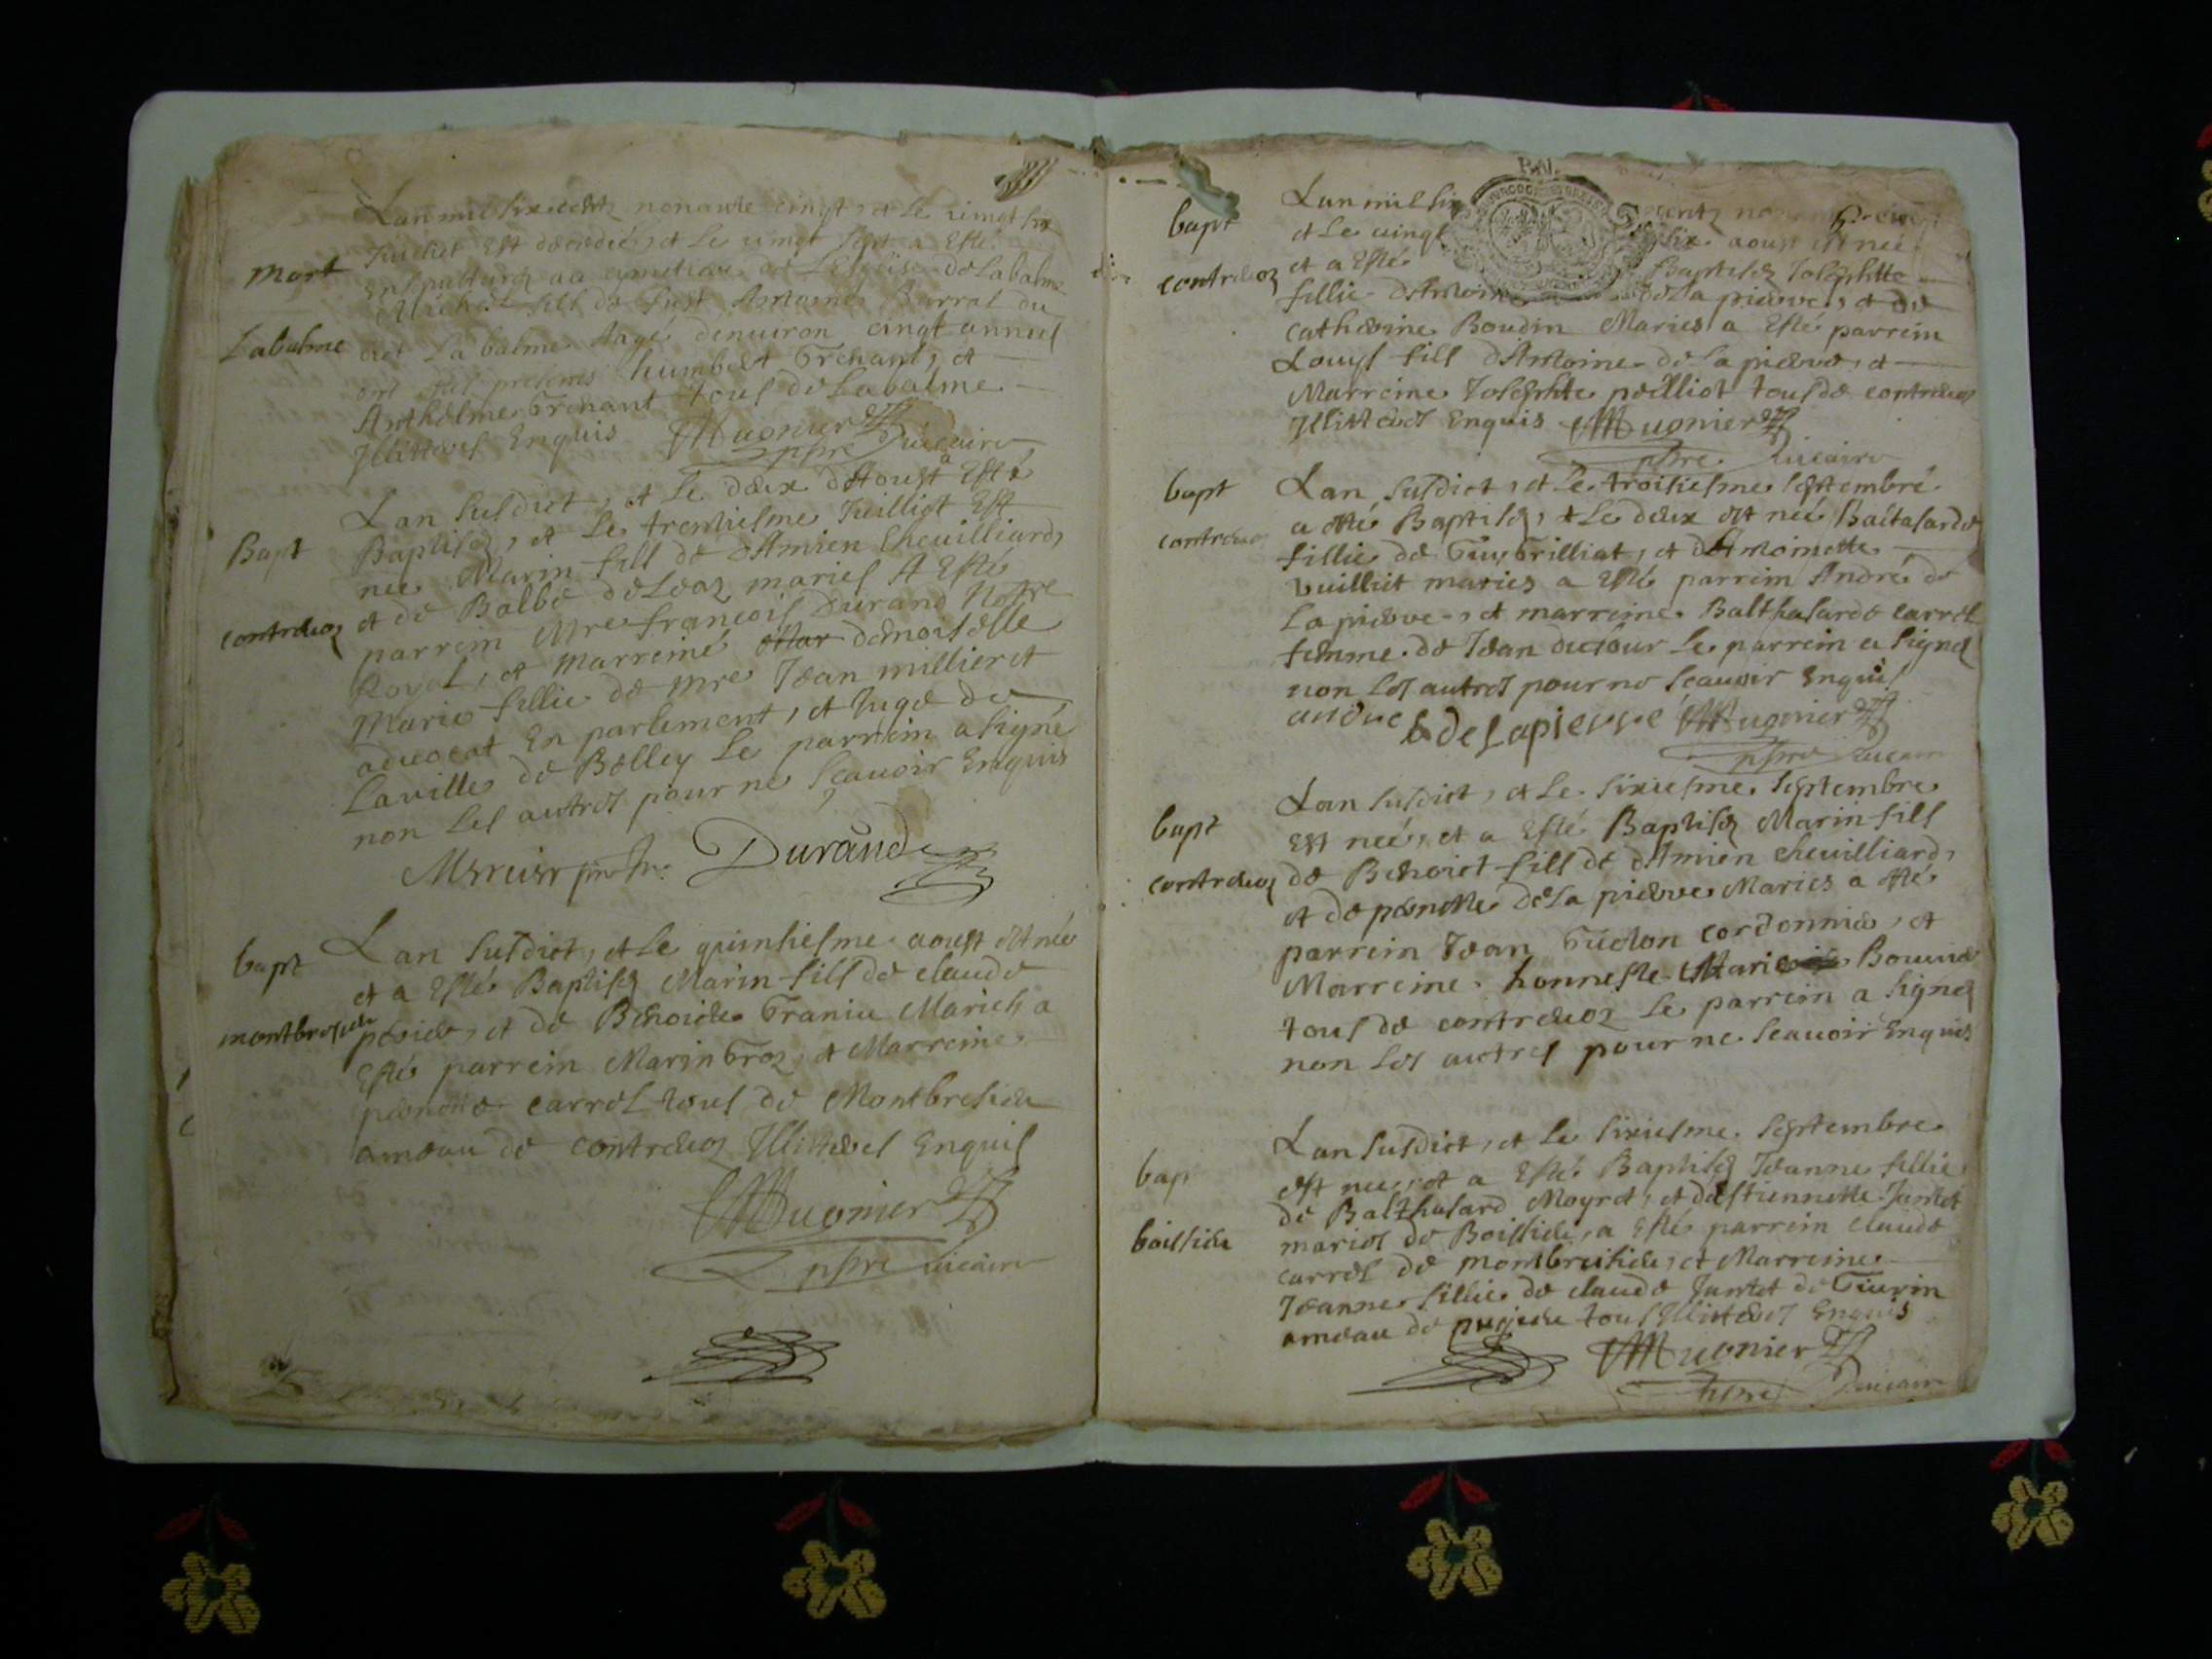 Lan mil six cents nonante cinq, et le vingt six
Juillet est decedé, et le vingt sept a esté
mort
ensepulturé au cymetiere de Leglise de Labalme
Michel fils de Just Antoine Burrat du
Labalme
dict La balme Aagé denuiron cinqt annees
ont estes presents humbert Trenant, et
Anthelme Trenant tous de Labalme
Illitteres Enquis Mugnier
pbre vicaire
Lan susdict, et Le deux dAoust a Esté
Bapt
Baptisé, et Le trentiesme Juilliet Est
neé Marin fils de dAmien Cheuilliard,
et de Balbe de Leaz mariés A Esté
contreuoz
parrein Mre françois Durand Nottre
Royal, et marreine Mar demoiselle
Marie fillie de mre Jean millieret
aduocat En parlement, et Juge de
Laville de Belley Le parrein a signé
non Les autres pour ne Scauoir Enquis
Mercier Durand
bapt
Lan susdict, et Le quinsiesme aoust est née
et a Esté Baptisé Marin fils de claude
montbresieu
perier, et de Benoiste Traniu Mariés a
Esté parrein Marin Troz, et Marreine
pernette carrel tous de Montbresieu
ameau de contreuoz Illitteres Enquis
Mugnier
pbre vicaire
bapt
Lan mil six cents
et Le vingt six aoust est neé
contreuoz
et a Esté Baptisée Josephtte
fillie dAntoine de La pierre, et de
catherine Boudin Mariés a Esté parrein
Louys fils dAntoine de La pierre, et
Marreine Josephte peilliot tous de contreuoz
Illitteres Enquis Mugnier
pbre vicaire
bapt
Lan susdict, et Le troisiesme septembre
a esté Baptisé, et Le deux est neé Baltasarde
contreuoz
fillie de Guy Trilliat, et dAntoinette
vuilliet mariés a Esté parrein André de
La pierre, et marreine Balthasarde carrel
femme de Jean dutour Le parrein a signé
non Les autres pour ne scauoir Enquis
andue delapierre Mugnier
pbre vicaire
Lan susdict, et Le sixiesme septembre
bapt
est neé, et a Esté Baptisé Marin fils
contreuoz
de Benoict fils de dAmien cheuilliard,
et de pernette de La pierre Mariés a esté
parrein Jean Guelon cordonnier, et
Marreine honneste Marie Bouuier
tous de contreuoz Le parrein a signé
non Les autres pour ne scauoir Enquis
Lan susdict, et Le sixiesme septembre
bap
est neé, et a Esté Baptisé Jeanne fillie
de Balthasard Moyret, et destiennette Juntet
boissieu
mariés de Boissieu, a Esté parrein claude
carrel de montbresieu, et Marreine
Jeanne fillie de claude Juntet de Giurin
ameau de pugieu tous Illitteres Enquis
Mugnier
pbre vicaire